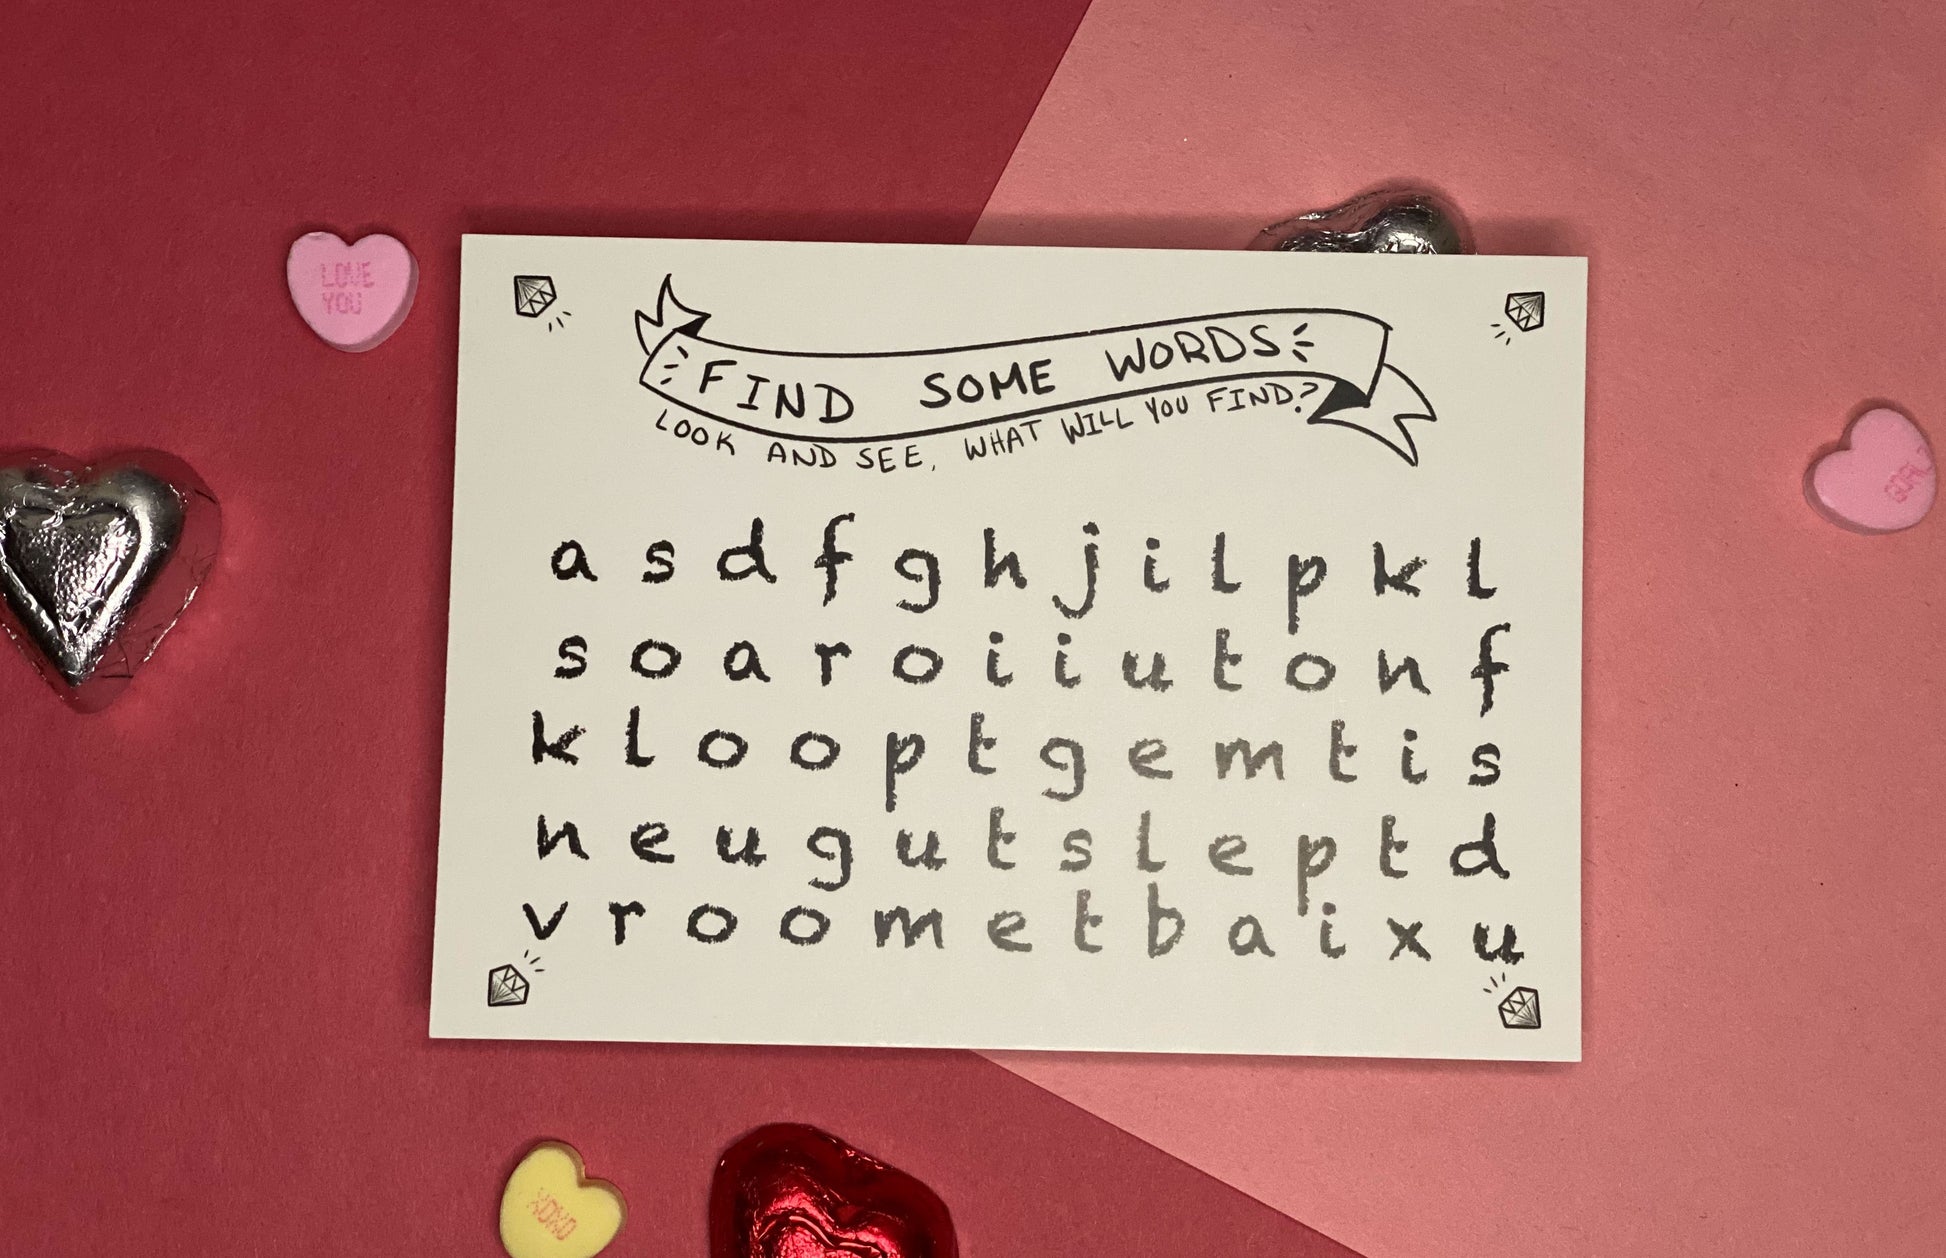 LOVE
YOU
FIND SOME WORDS
LOOK AND SEE, WHAT WILL YOU FIND?
a s d f g h j i l p k l
s o a r o i i u t o n f
k l o o p t g e m t i s
n e u g u t s l e p t d
v r o o m e t b a i x u
XOXO